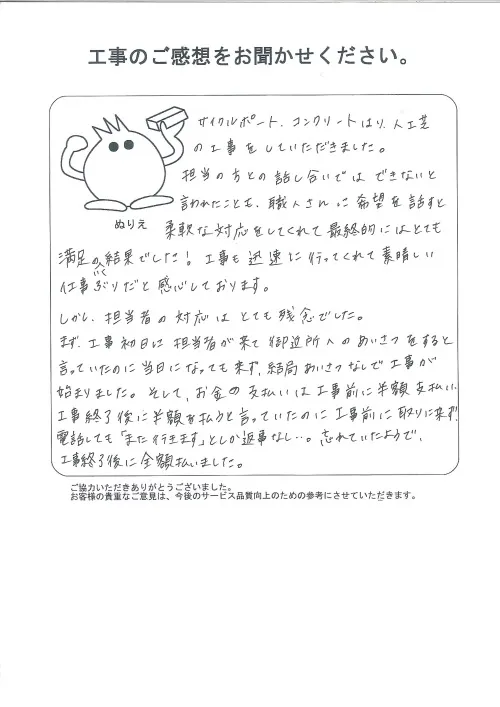 工事のご感想をお聞かせください。
サイクルポート、コンクリートはり、人工芝
の工事をしていただきました。
担当の方との話し合いではできないと
言われたことも、職人さんに希望を話すと
ぬりえ
柔軟な対応をしてくれて最終的にはとても
満足のいく結果でした！工事も迅速に行ってくれて素晴しい
仕事ぶりだと感心しております。
しかし、担当者の対応はとても残念でした。
まず、工事初日に担当者が来て御近所へのあいさつをすると
言っていたのに当日になっても来ず、結局あいさつなしで工事が
始まりました。そして、お金の支払いは工事前に半額支払い、
工事終了後に半額を払うと言っていたのに工事前に取りに来ず、
電話しても「また行きます」としか返事なし…。忘れていたようで、
工事終了後に全額払いました。
ご協力いただきありがとうございました。
お客様の貴重なご意見は、今後のサービス品質向上のための参考にさせていただきます。